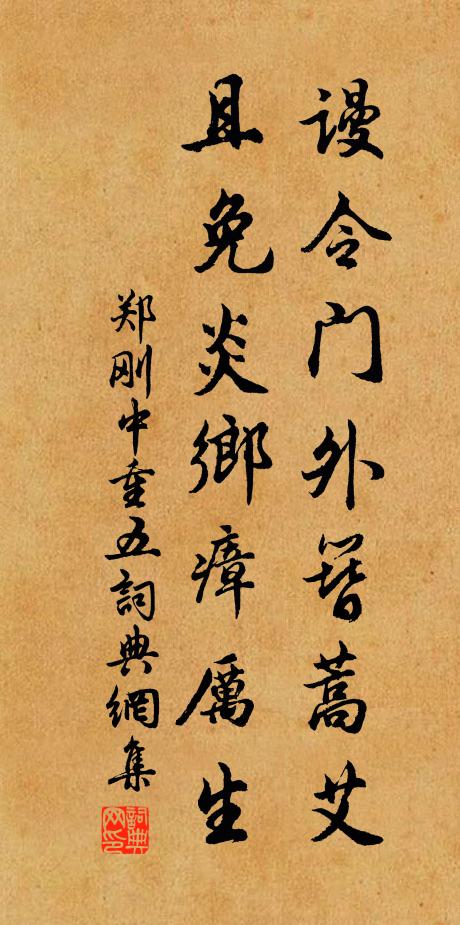 谩令门外簪蒿艾
且免炎鄉瘴厲生
郑刚中重五詞典網集
詞典网印